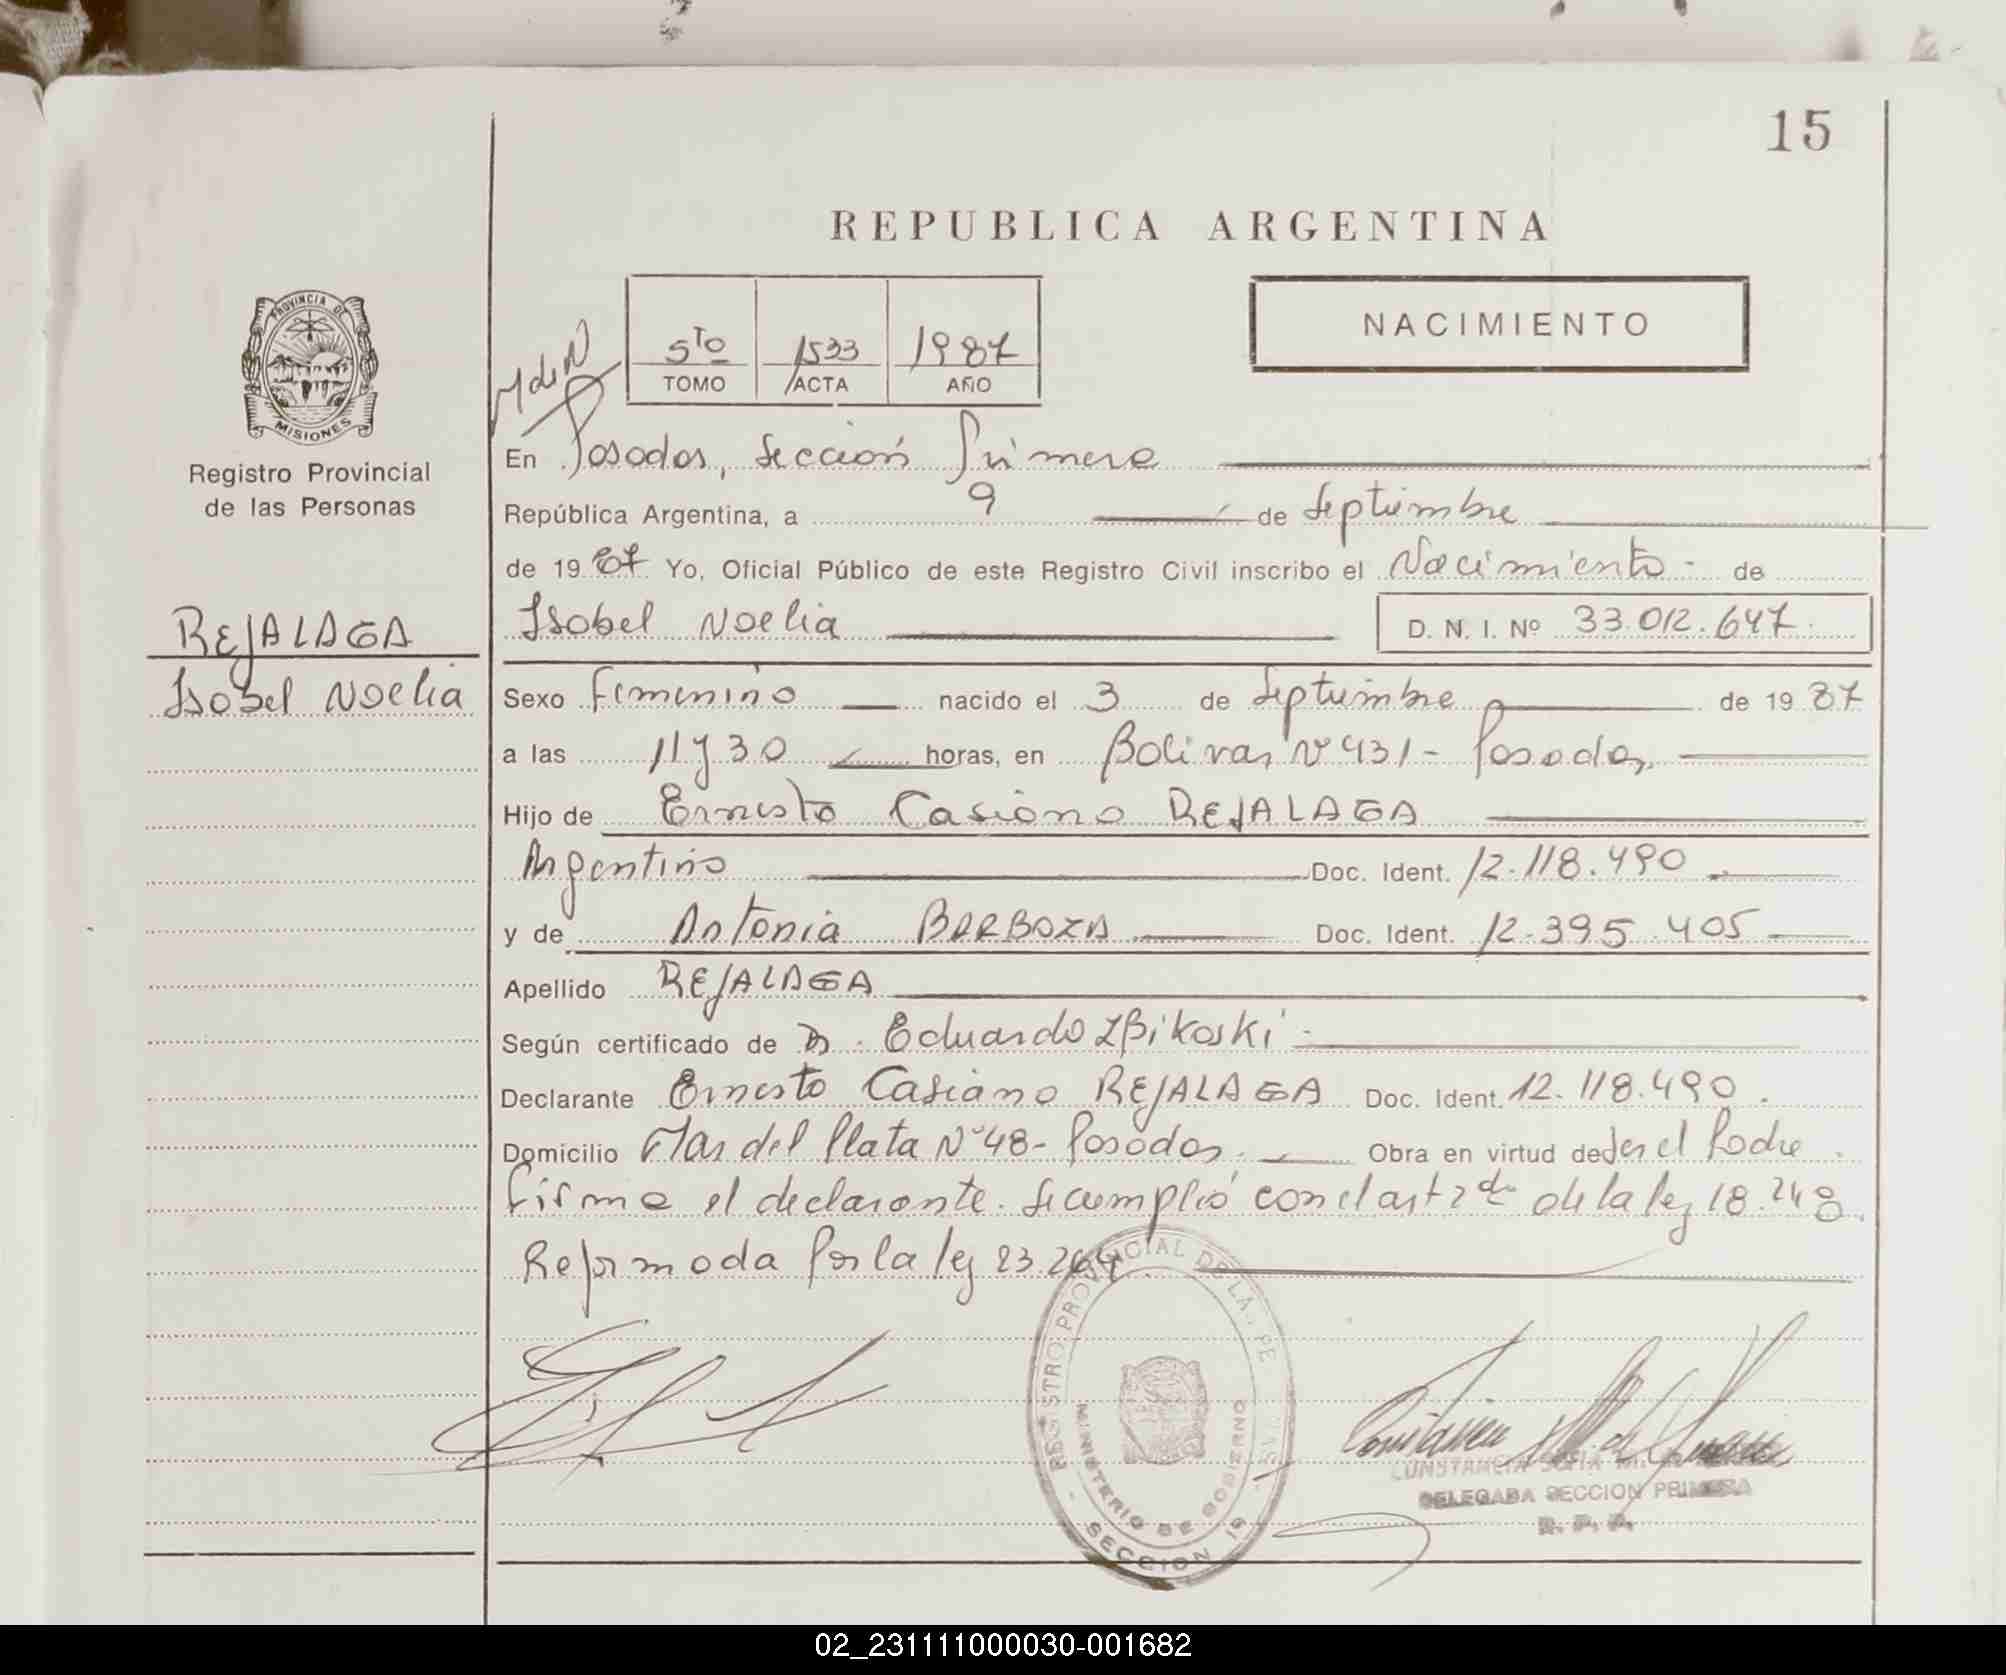 15
REPUBLICA ARGENTINA
NACIMIENTO
5to 1533 1987
TOMO ACTA AÑO
PROVINCIA DE
MISIONES
Registro Provincial
de las Personas
REJALAGA
Isabel Noelia
En Posadas, Sección Primera
República Argentina, a 9 de Septiembre
de 1987 Yo, Oficial Público de este Registro Civil inscribo el Nacimiento - de
Isabel Noelia D. N. I. Nº 33.012.647.
Sexo Femenino nacido el 3 de Septiembre de 1987
a las 11 y 30 horas, en Bolivar Nº 431 - Posadas,
Hijo de Ernesto Casiano REJALAGA
Argentino Doc. Ident. 12.118.490
y de Antonia BARBOZA Doc. Ident. 12.395.405
Apellido REJALAGA
Según certificado de Dr. Eduardo ZBikoski
Declarante Ernesto Casiano REJALAGA Doc. Ident. 12.118.490.
Domicilio Mar del Plata Nº 48 - Posadas. Obra en virtud de Ser el Padre.
Firma el declarante. Se cumplió con el art 2do de la ley 18.248
Reformada Por la ley 23.264.
REGISTRO PROVINCIAL DE LA. PE
MINISTERIO DE GOBIERNO
SECCION 1ª
CONSTANCIA SOFIA M.
DELEGADA SECCION PRIMERA
R. P. P.
02_231111000030-001682